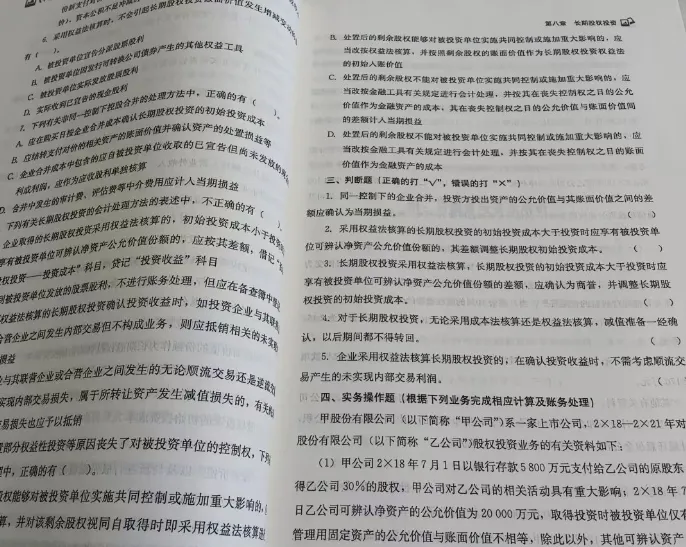 6. 采用权益法核算时，不会引起长期股权投资账面价值发生增减变动的
有（　）。
A. 被投资单位宣告分派股票股利
B. 被投资单位因发行可转换公司债券产生的其他权益工具
C. 被投资单位实际发放股票股利
D. 实际收到已宣告的现金股利
7. 下列有关非同一控制下控股合并的处理方法中，正确的有（　）。
A. 应在购买日按企业合并成本确认长期股权投资的初始投资成本
B. 应结转支付对价的相关资产的账面价值并确认资产的处置损益等
C. 企业合并成本中包含的应自被投资单位收取的已宣告但尚未发放的
利或利润，应作为应收股利单独核算
D. 合并中发生的审计费、评估费等中介费用应计入当期损益
下列有关长期股权投资的会计处理方法的表述中，不正确的有（　）。
企业取得的长期股权投资采用权益法核算的，初始投资成本小于投
享有被投资单位可辨认净资产公允价值份额的，应按其差额，借记“
权投资——投资成本”科目，贷记“投资收益”科目
到被投资单位发放的股票股利，不进行账务处理，但应在备查簿中
权益法核算的长期股权投资确认投资收益时，如投资企业与其联
合营企业之间发生内部交易但不构成业务，则应抵销相关的未实
损益
业与其联营企业或合营企业之间发生的无论顺流交易还是逆流
实现内部交易损失，属于所转让资产发生减值损失的，有关
交易损失也应予以抵销
置部分权益性投资等原因丧失了对被投资单位的控制权，下列
理中，正确的有（　）。
股权能够对被投资单位实施共同控制或施加重大影响的，
算，并对该剩余股权视同自取得时即采用权益法核算进
第八章　长期股权投资
B. 处置后的剩余股权能够对被投资单位实施共同控制或施加重大影响的，应
当改按权益法核算，并按照剩余股权的账面价值作为长期股权投资权益法
的初始入账价值
C. 处置后的剩余股权不能对被投资单位实施共同控制或施加重大影响的，应
当改按金融工具有关规定进行会计处理，并按其在丧失控制权之日的公允
价值作为金融资产的成本，其在丧失控制权之日的公允价值与账面价值间
的差额计入当期损益
D. 处置后的剩余股权不能对被投资单位实施共同控制或施加重大影响的，应
当改按金融工具有关规定进行会计处理，并按其在丧失控制权之日的账面
价值作为金融资产的成本
三、判断题（正确的打“√”，错误的打“×”）
1. 同一控制下的企业合并，资方投出资产的公允价值与其账面价值之间的差
额应确认为当期损益。（　）
2. 采用权益法核算的长期股权投资的初始投资成本大于投资时应享有被投资单
位可辨认净资产公允价值份额的，其差额调整长期股权初始投资成本。（　）
3. 长期股权投资采用权益法核算，长期股权投资的初始投资成本大于投资时应
享有被投资单位可辨认净资产公允价值份额的差额，应确认为商誉，并调整长期股
权投资的初始投资成本。（　）
4. 对于长期股权投资，无论采用成本法核算还是权益法核算，减值准备一经确
认，以后期间都不得转回。（　）
5. 企业采用权益法核算长期股权投资的，在确认投资收益时，不需考虑顺流交
易产生的未实现内部交易利润。
四、实务操作题（根据下列业务完成相应计算及账务处理）
甲股份有限公司（以下简称“甲公司”）系一家上市公司，2×18—2×21年对
股份有限公司（以下简称“乙公司”）股权投资业务的有关资料如下：
（1）甲公司2×18年7月1日以银行存款5 800万元支付给乙公司的原股东
得乙公司30%的股权，甲公司对乙公司的相关活动具有重大影响；2×18年7
日乙公司可辨认净资产的公允价值为20 000万元，取得投资时被投资单位仅有
管理用固定资产的公允价值与账面价值不相等，除此以外，其他可辨认资产